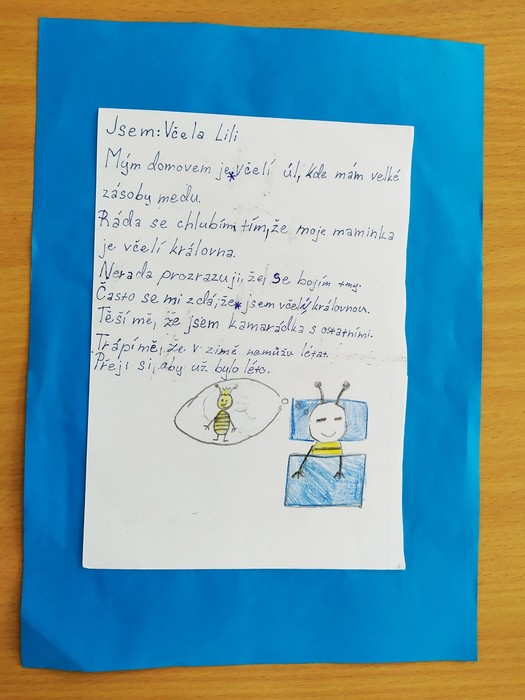 Jsem: Včela Lili
Mým domovem je včelí úl, kde mám velké
zásoby medu.
Ráda se chlubím tím, že moje maminka
je včelí královna.
Nerada prozrazuji, že se bojím tmy.
Často se mi zdá, že jsem včelí královnou.
Těší mě, že jsem kamarádka s ostatními.
Trápí mě, že v zimě nemůžu létat.
Přeji si, aby už bylo léto.